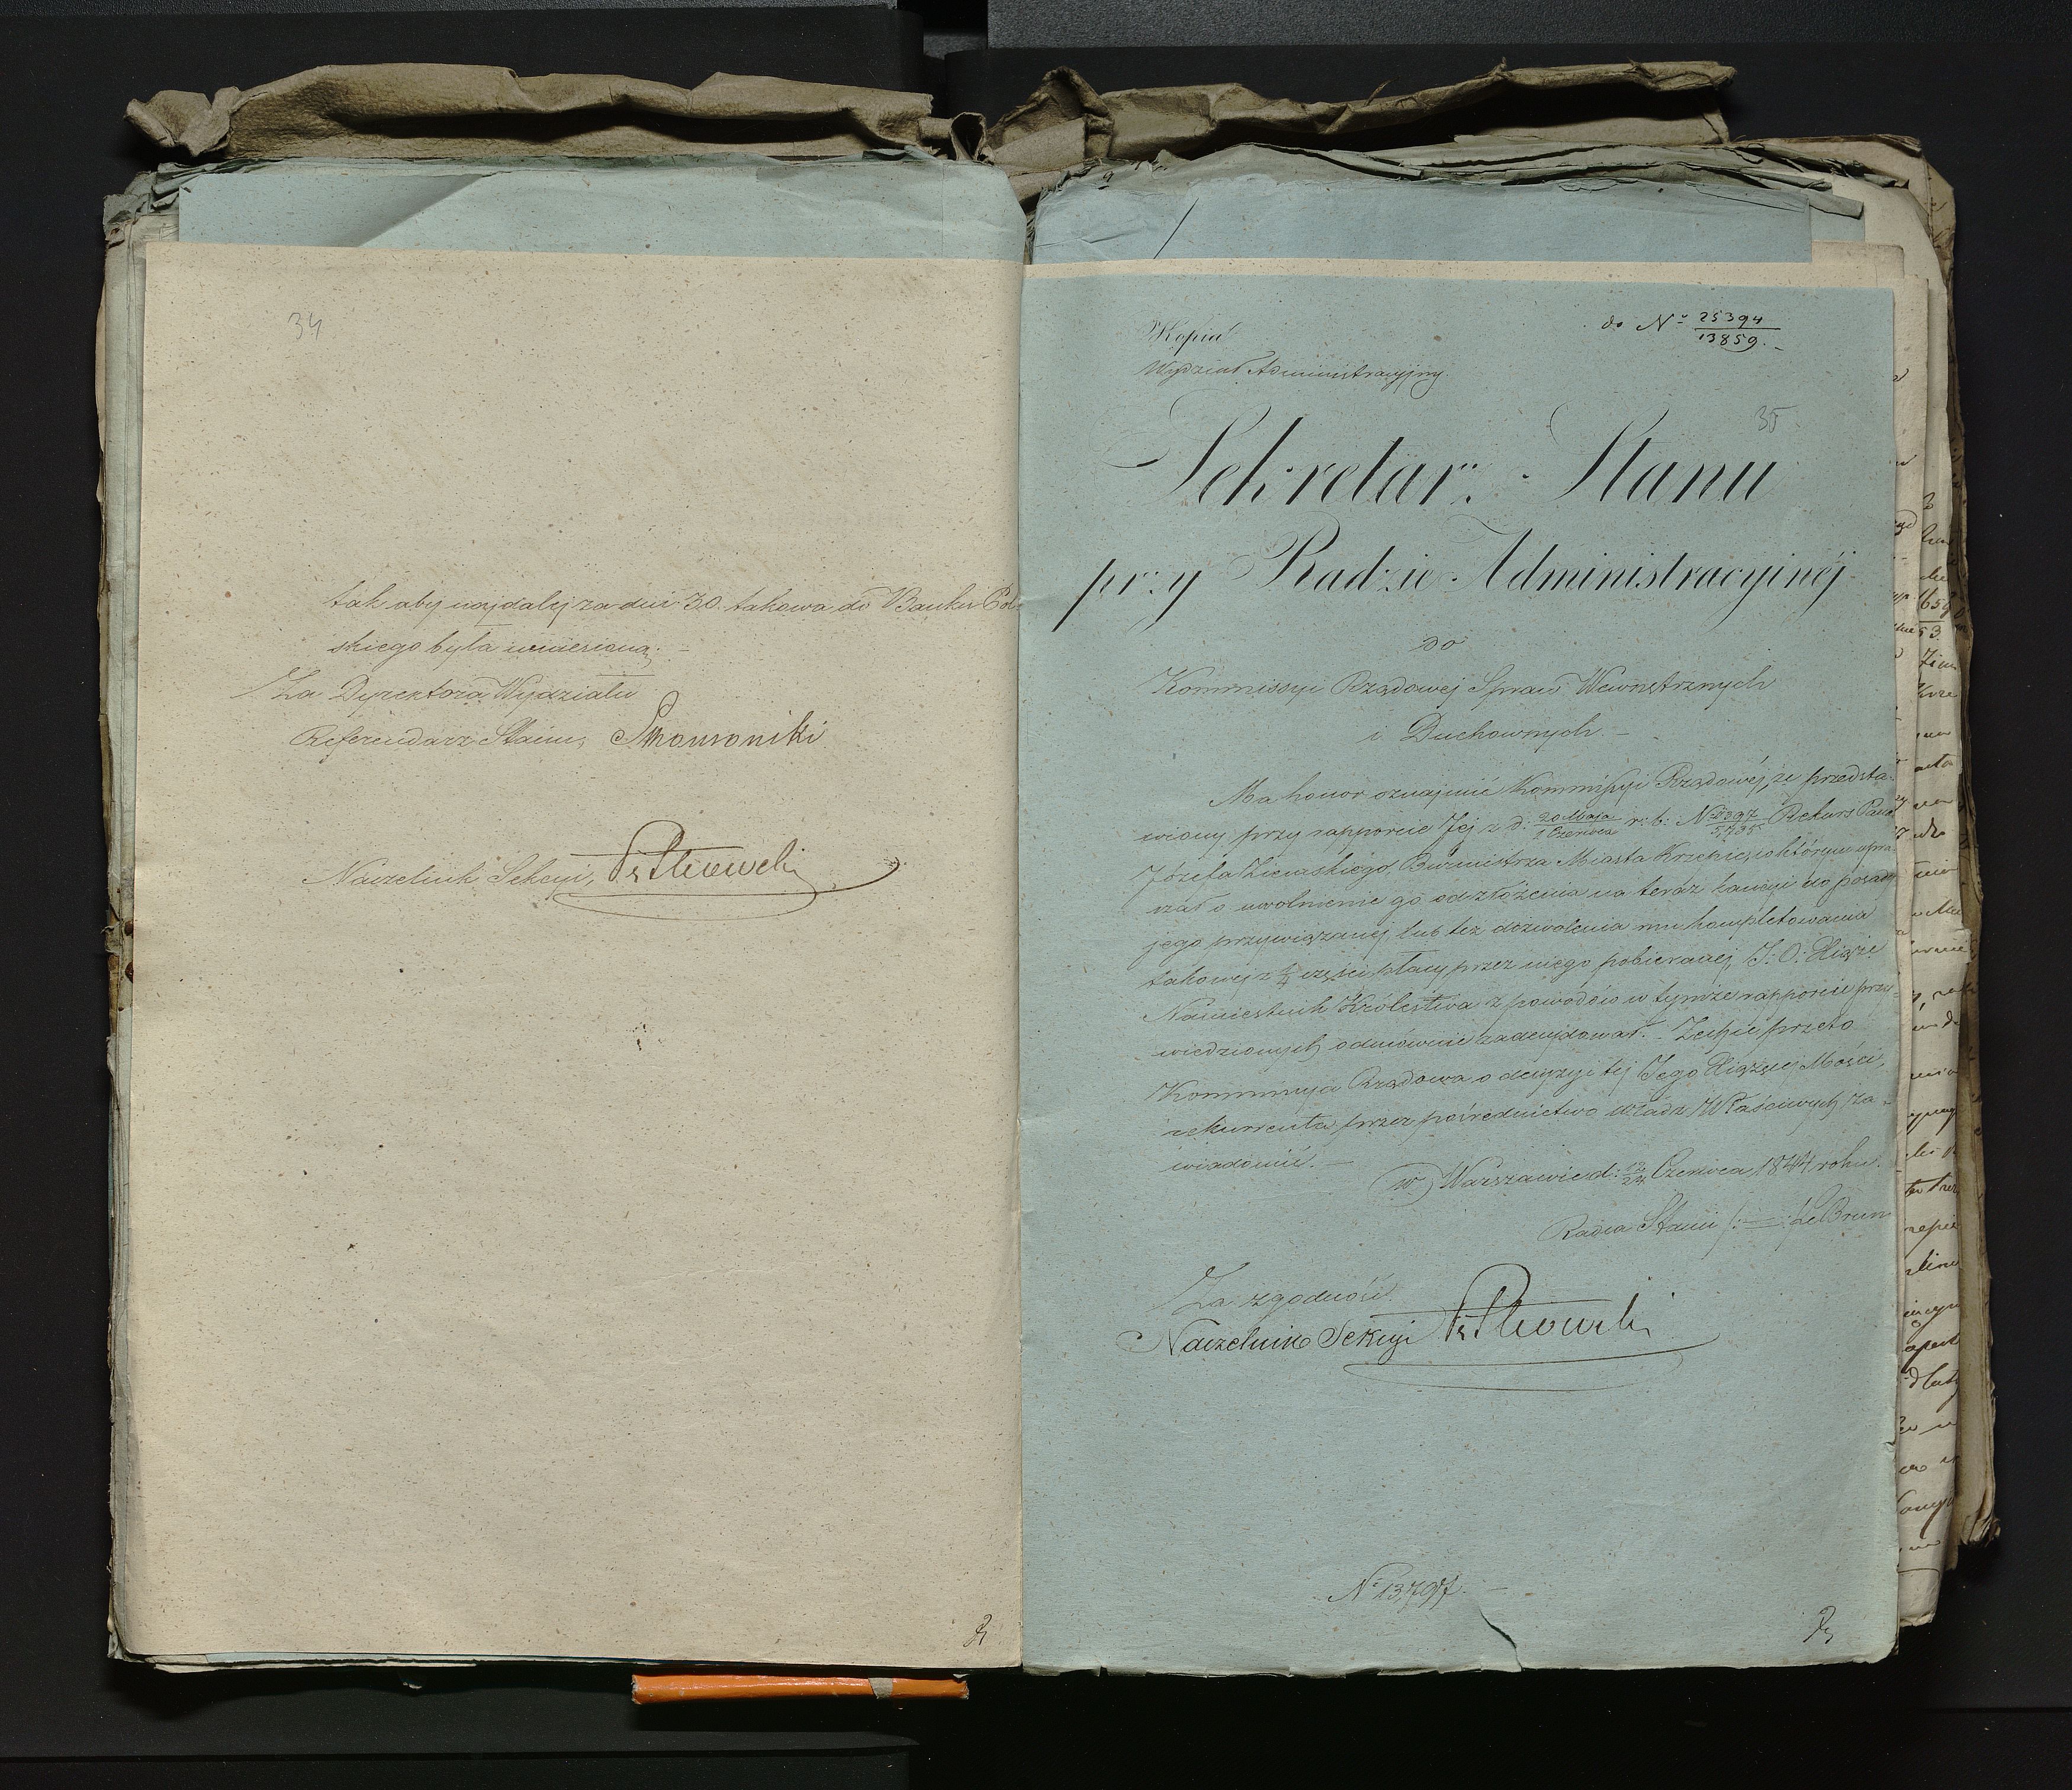 34
tak aby najdalej za dni 30. takowa do Banku Pol-
skiego była wniesioną. –
Za Dyrektora Wydziału
Referendarz Stanu,
Naczelnik Sekcyi,
Kopia
do Nº 25394/13859. –
Wydział Administracyjny.
35
Sekretarz Stanu
przy Radzie Administracyjnéj
do
Kommissyi Rządowej Spraw Wewnętrznych
i Duchownych. –
Ma honor oznajmić Kommissyi Rządowéj, że przedsta-
wiony przy rapporcie Jej z d: 20 Maja/1 Czerwca r: b: Nº Rekurs Pana
Józefa Ziemskiego, Burmistrza Miasta Krzepic, w którym upra-
szał o uwolnienie go od złożenia na teraz kaucyi do posady
jego przywiązanej, lub też dozwolenia mu kompletowania
takowej z 1/4 części płacy przez niego pobieranej, J: O: Xiąże
Namiestnik Królestwa z powodów w tymże rapporcie przy-
wiedzionych, odmownie zadecydował. – Zechce przeto
Kommissya Rządowa o decyzyi téj Jego Xiążęcej Mości,
rekurrenta przez pośrednictwo władz Właściwych za-
wiadomić. –
w Warszawie d: 12/24 Czerwca 1844 roku.
Radca Stanu /:—:/ Le Brun
Za zgodność
Naczelnik Sekcyi
Nº 13,797. –